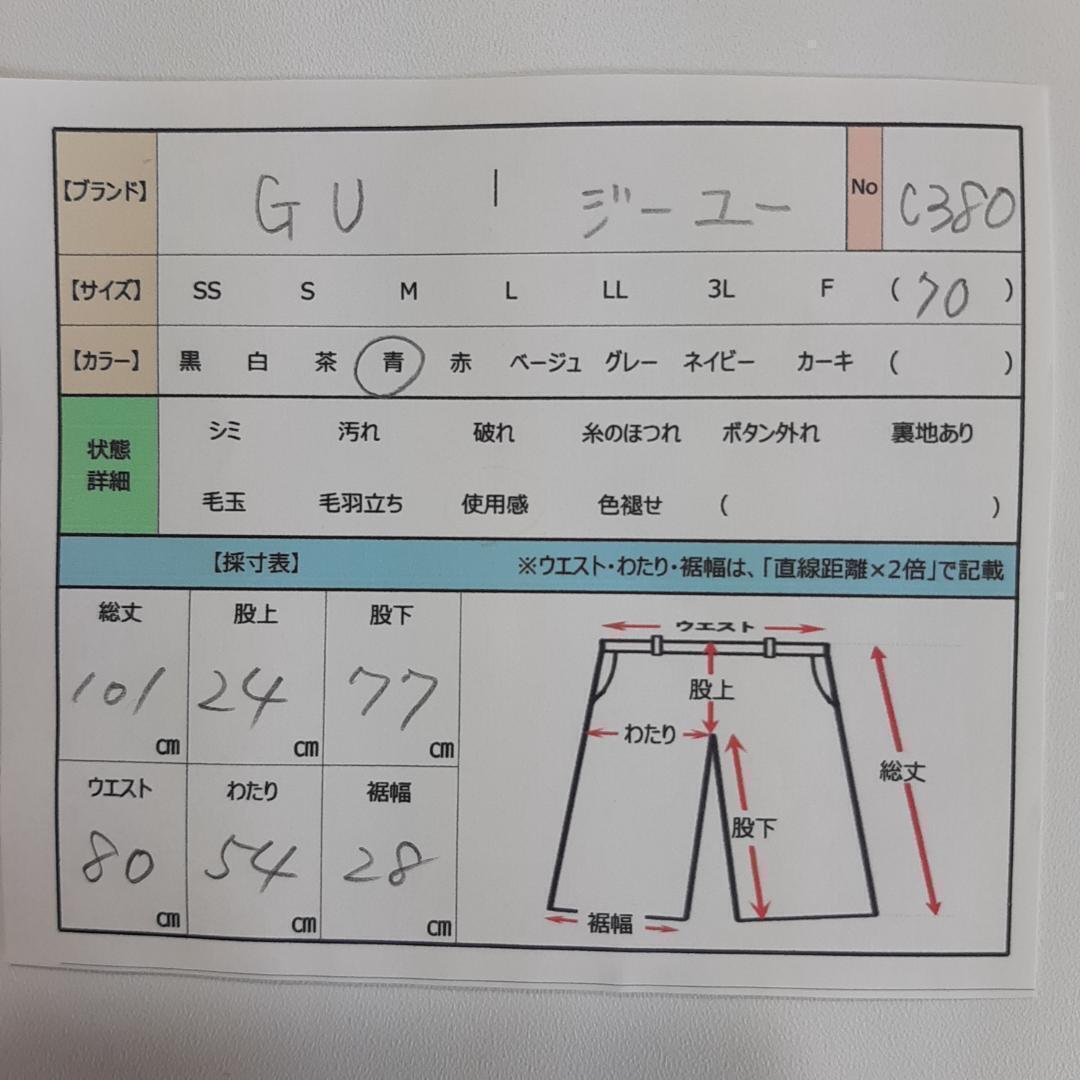 【ブランド】 GU | ジーユー No C380
【サイズ】 SS S M L LL 3L F ( 70 )
【カラー】 黒 白 茶 青 赤 ベージュ グレー ネイビー カーキ ( )
状態詳細
シミ 汚れ 破れ 糸のほつれ ボタン外れ 裏地あり
毛玉 毛羽立ち 使用感 色褪せ ( )
【採寸表】 ※ウエスト・わたり・裾幅は、「直線距離×2倍」で記載
総丈 股上 股下
101 cm 24 cm 77 cm
ウエスト わたり 裾幅
80 cm 54 cm 28 cm
ウエスト
股上
わたり
総丈
股下
裾幅